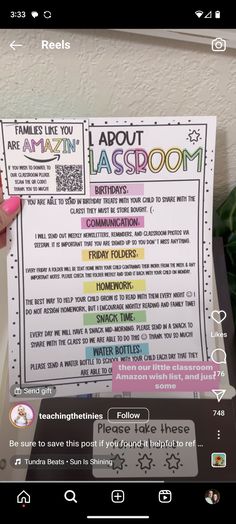 3:33
Reels
FAMILIES LIKE YOU
ARE AMAZIN'
IF YOU WISH TO DONATE TO
OUR CLASSROOM PLEASE
SCAN THE QR CODE!
THANK YOU SO MUCH!
L ABOUT
LASSROOM
BIRTHDAYS:
YOU ARE ABLE TO SEND IN BIRTHDAY TREATS WITH YOUR CHILD TO SHARE WITH THE
CLASS! THEY MUST BE STORE BOUGHT. (:
COMMUNICATION:
I WILL SEND OUT WEEKLY NEWSLETTERS, REMINDERS, AND CLASSROOM PHOTOS VIA
SEESAW. IT IS IMPORTANT THAT YOU ARE SIGNED UP SO YOU DON'T MISS ANYTHING.
FRIDAY FOLDERS:
EVERY FRIDAY A FOLDER WILL BE SENT HOME WITH YOUR CHILD CONTAINING THEIR WORK FROM THE WEEK & ANY
IMPORTANT NOTES. PLEASE CHECK THIS FOLDER WEEKLY AND SEND IT BACK WITH YOUR CHILD ON MONDAY.
HOMEWORK:
THE BEST WAY TO HELP YOUR CHILD GROW IS TO READ WITH THEM EVERY NIGHT I
DO NOT ASSIGN HOMEWORK, BUT I ENCOURAGE NIGHTLY READING AND FAMILY TIME!
SNACK TIME:
EVERY DAY WE WILL HAVE A SNACK MID-MORNING. PLEASE SEND IN A SNACK TO
SHARE WITH THE CLASS SO WE ARE ABLE TO DO THIS THANK YOU SO MUCH!
WATER BOTTLES:
PLEASE SEND A WATER BOTTLE TO SCHOOL WITH YOUR CHILD EACH DAY THAT THEY
ARE ABLE TO
then our little classroom
Amazon wish list, and just
some
Likes
76
748
Send gift
teachingthetinies
Follow
Please take these
Be sure to save this post if you found it helpful to ref ...
Tundra Beats • Sun Is Shining